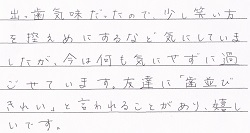 出っ歯気味だったので、少し笑い方
を控えめにするなど気にしていま
したが、今は何も気にせずに過
ごせています。友達に「歯並び
きれい」と言われることがあり、嬉し
いです。